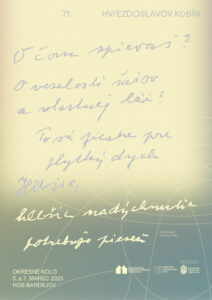 71. HVIEZDOSLAVOV KUBÍN
O čom spievaš?
O veselosti šašov
a vlastnej léži?
To sú piesne pre
plytký dych.
Hlbšie,
hlbšie nadýchnutie
potrebuje pieseň
OKRESNÉ KOLO
5. a 7. MAREC 2025
HOS BARDEJOV